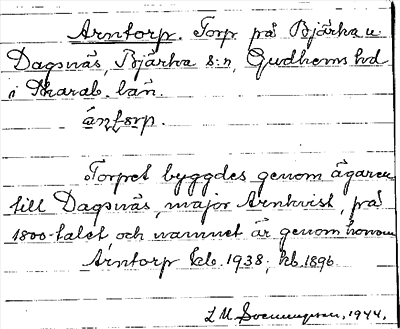 Arntorp. Torp på Bjärka u.
Dagsnäs, Bjärka s:n, Gudhems hd
i Skarab. län.
ánt̥o̥rp.
Torpet byggdes genom ägaren
till Dagsnäs, major Arnkvist, på
1800-talet, och namnet är genom honom
Arntorp kb. 1938; kb. 1896
L M Svenungsson, 1944.